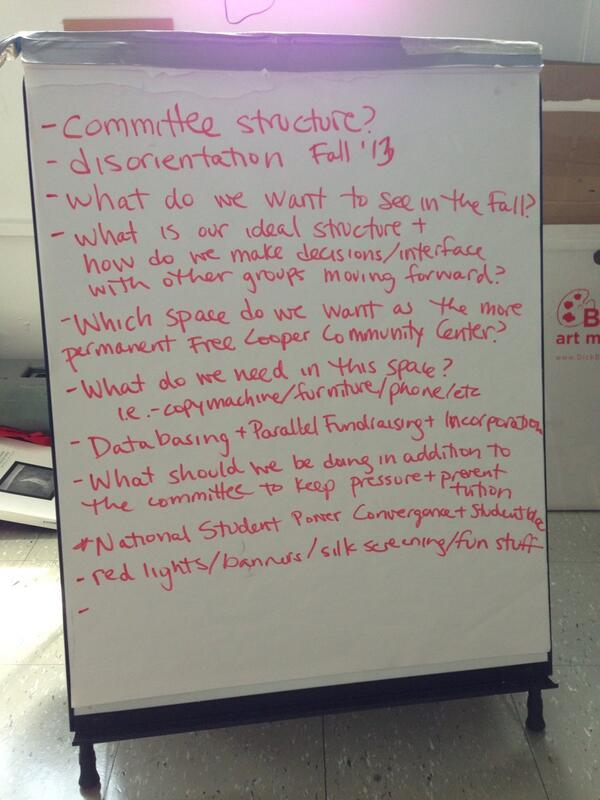 - Committee structure?
- disorientation Fall '13
- What do we want to see in the Fall?
- What is our ideal structure +
how do we make decisions/interface
with other groups moving forward?
- Which space do we want as the more
permanent Free Cooper Community Center?
- What do we need in this space?
i.e. - copymachine/furniture/phone/etc
- Databasing + Parallel Fundraising + Incorporation
- What should we be doing in addition to
the committee to keep pressure + prevent
tution
* National Student Power Convergence + Student
- red lights/banners/silk screening/fun stuff
-
B
art m
www.DickB